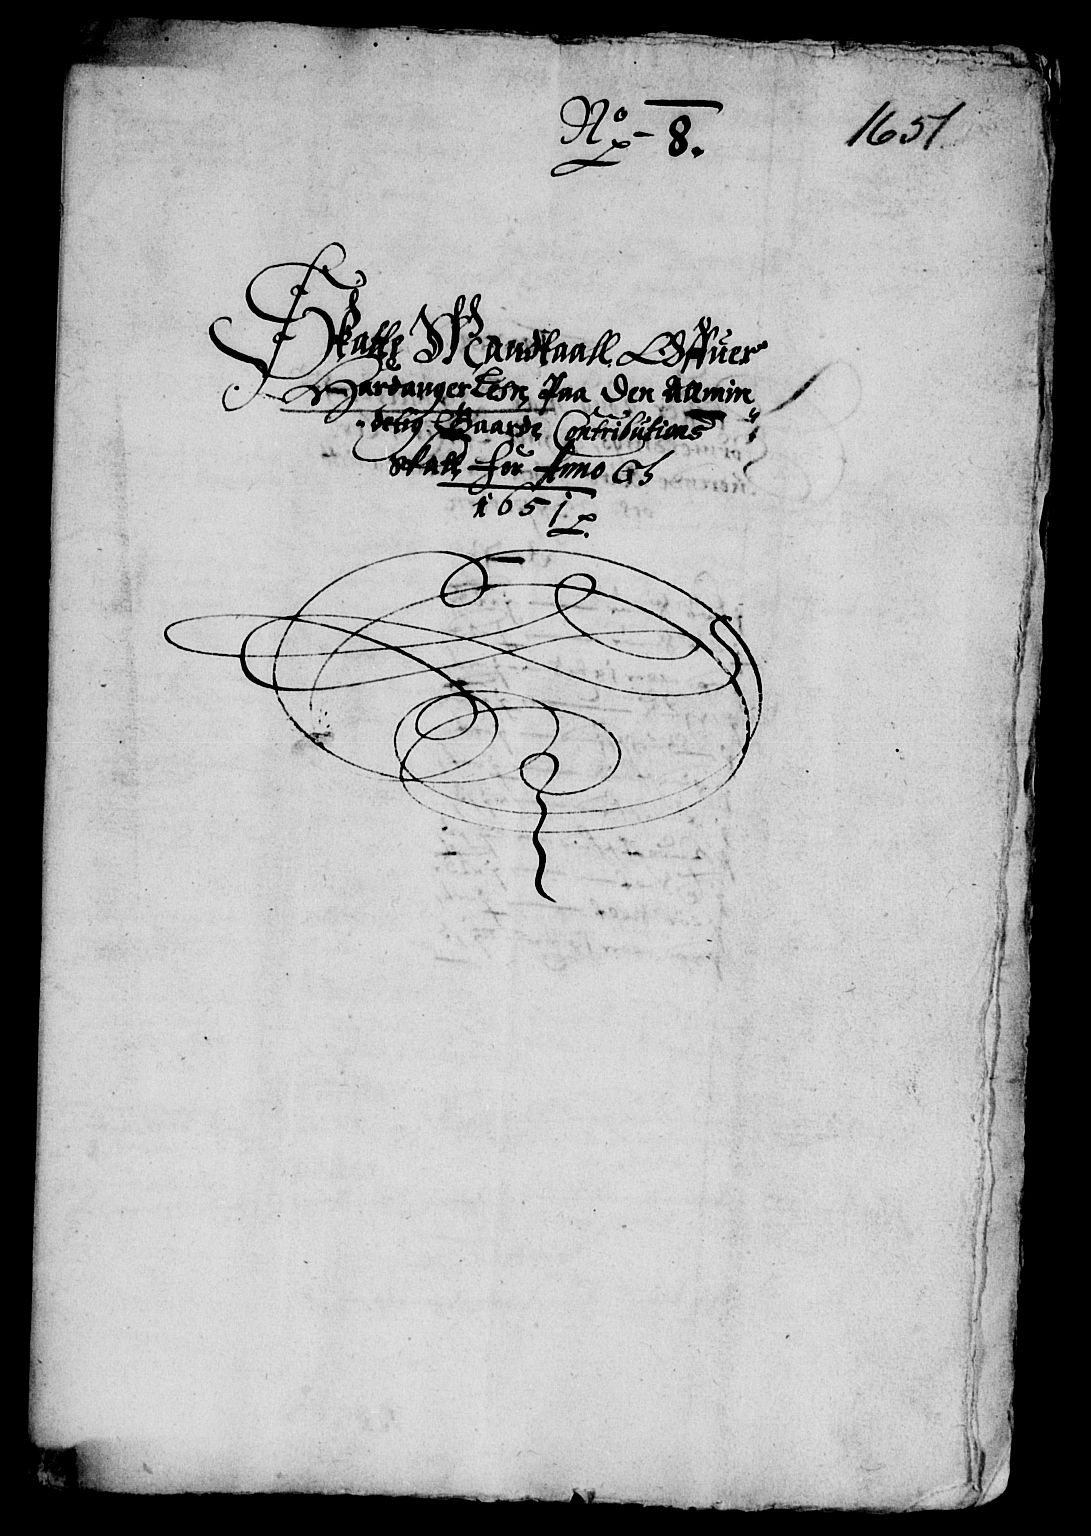 No 8.
1651
Skatte Mandtaall Offuer
Hardanger Lehn Paa Den Allmin
delig Gaarde Contributions
Skatt for Anno &
1651